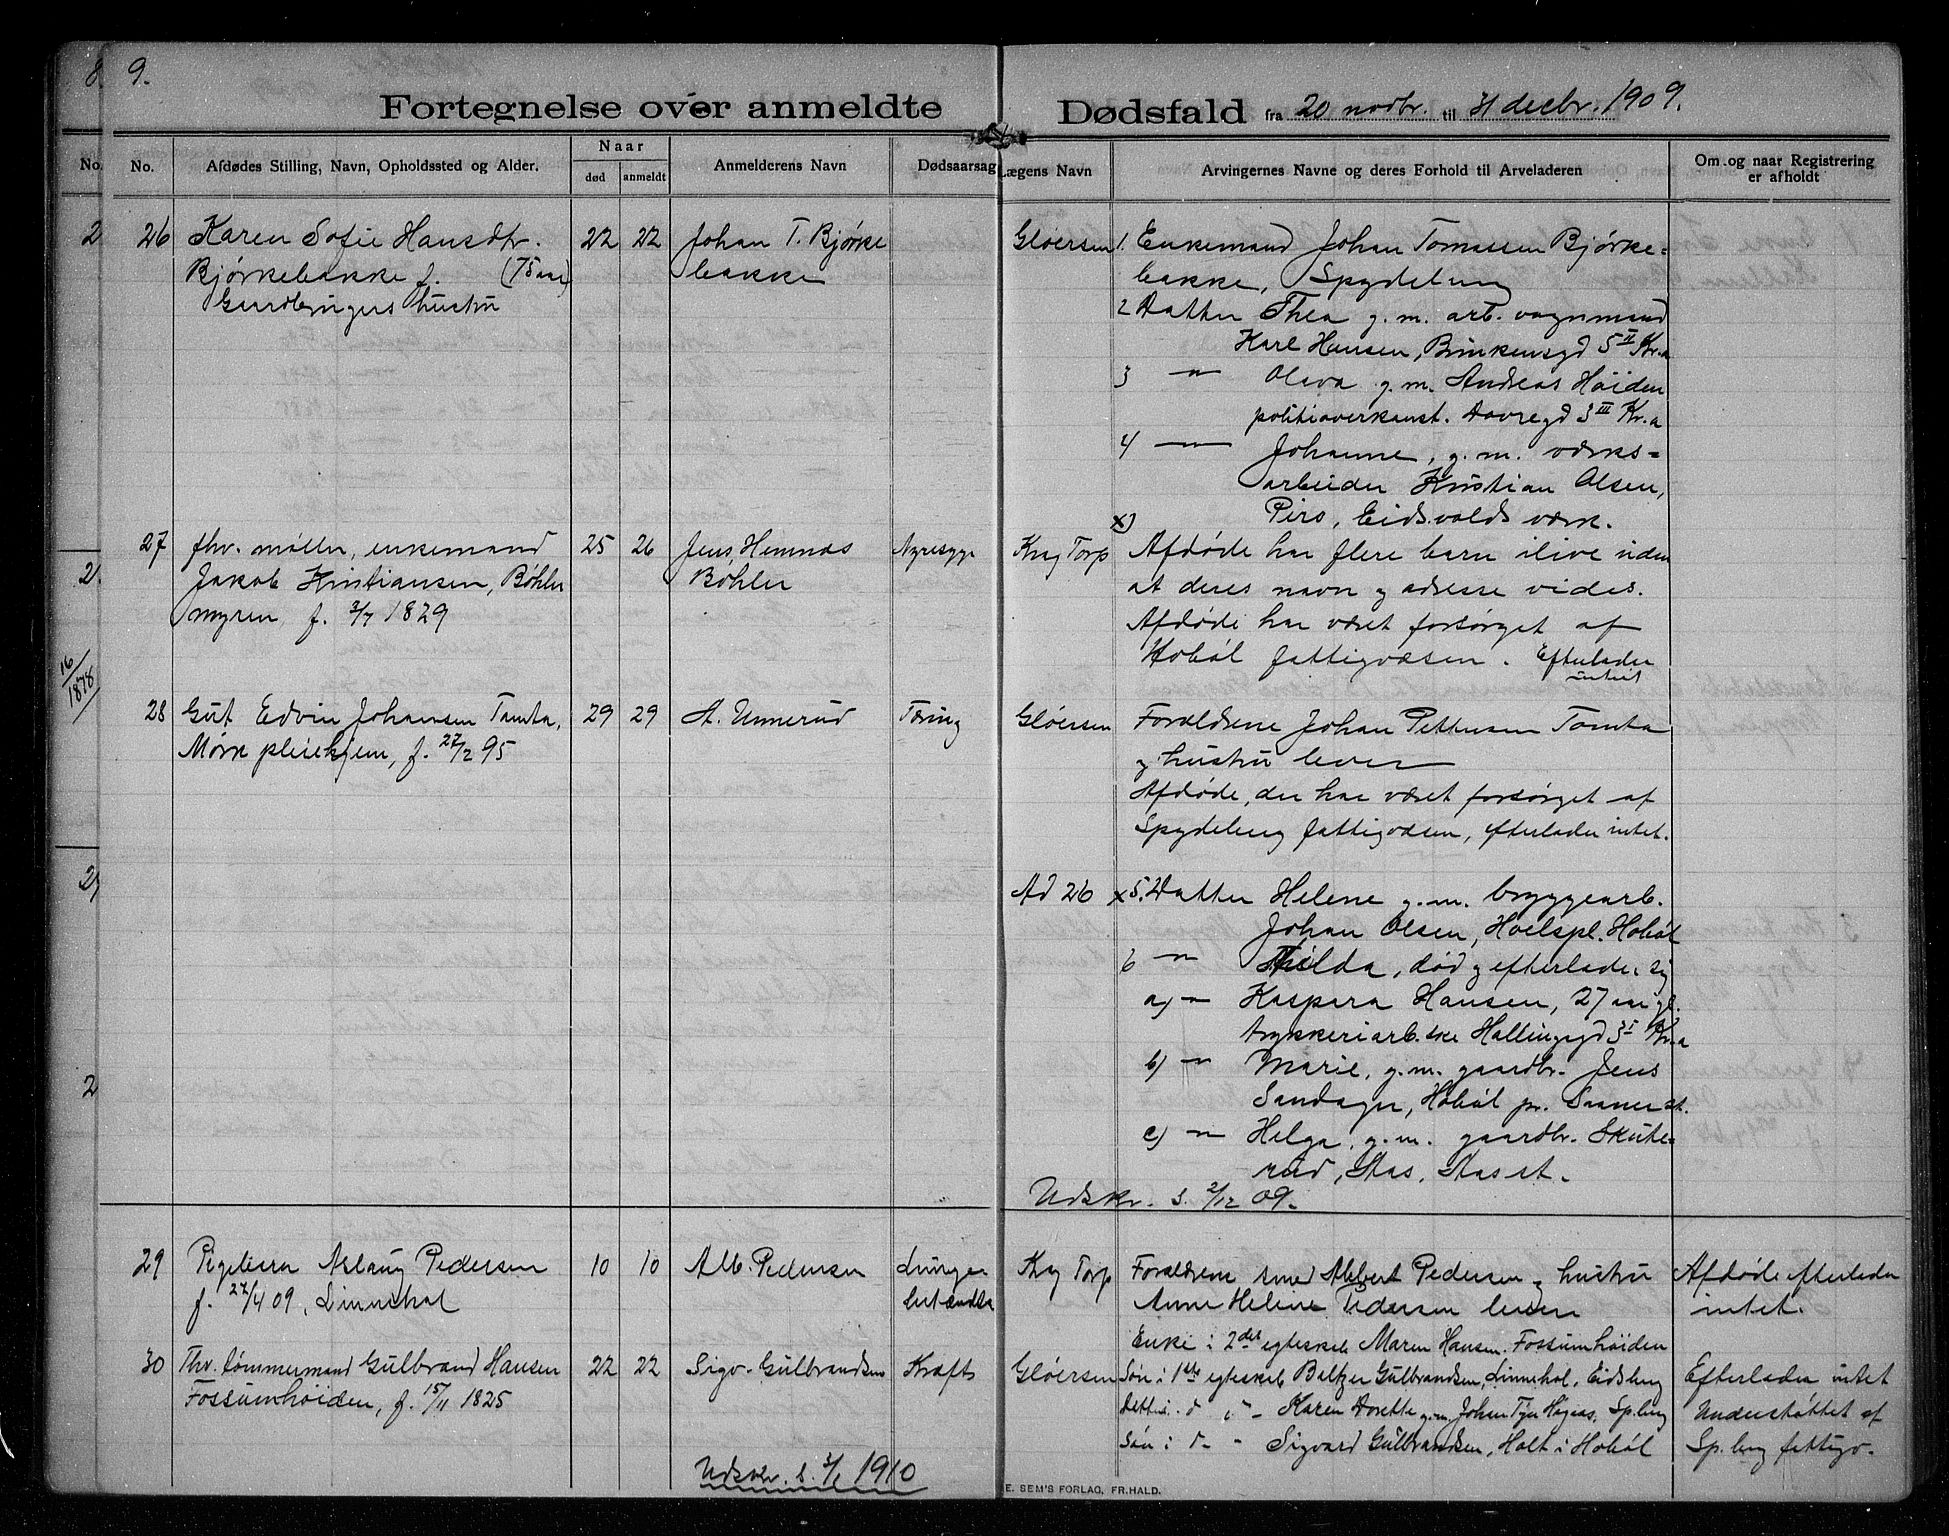 8. 9.
Fortegnelse over anmeldte Dødsfald fra 20 novbr. til 31 decbr. 1909.
No. No. Afdødes Stilling, Navn, Opholdssted og Alder. Naar død anmeldt Anmelderens Navn Dødsaarsag Lægens Navn Arvingernes Navne og deres Forhold til Arveladeren Om og naar Registrering er afholdt
2 26 Karen Sofie Hansdtr. 22 22 Johan T. Bjørke
Bjørkebakke f. (75 aar) bakke
Gaardbrugers hustru
Gløersen 1. Enkemand Johan Tomassen Bjørke=
bakke, Spydeberg
2 Datter Thea g. m. arb. vognmand
Karl Hansen, Brinkensgd 5 II Kr.a
3 — " — Olava g. m. Andreas Høiden
politioverkonst. Dovregd 3 III Kr.a
4 — " — Johanne, g. m. værks=
arbeider Kristian Olsen,
Piro, Eidsvolds værk.
x)
27 fhv. møller, enkemand 25 26 Jens Hemnæs Nyresyge
Jakob Kristiansen, Bøhler Bøhler
myren f. 3/7 1829
Krag Torp Afdøde har flere barn ilive uden
at deres navn og adresse vides.
Afdøde har været forsørget af
Hobøl fattigvæsen. Efterlader
intet
2
16/1878
28 Gut Edvin Johansen Tomta, 29 29 A. Unnerud Tæring
Mørk pleiehjem, f. 27/2 95
Gløersen Forældrene Johan Pettersen Tomta
og hustru lever
Afdøde, der har været forsørget af
Spydeberg fattigvæsen, efterlader intet.
2
Ad 26 x 5. Datter Helene g. m. bryggearb.
Johan Olsen, Hoelspl. Hobøl
6 — " — Tilda, død og efterlader sig
a) — " — Kaspara Hansen, 27 aar gl.
trykkeriarb.ske Hallingsgd 3 I Kr.a
b) — " — Marie, g. m. gaardbr. Jens
Sandager, Hobøl pr. Soner st.
c) — " — Helga, g. m. gaardbr. Skute=
rud, Aas, Aas st.
2
Udskr. s. 2/12 09.
29 Pigebarn Aslaug Pedersen 10 10 Alb. Pedersen Lunge
f. 27/4 09, Linnehol betændelse
Krag Torp Forældrene smed Albert Pedersen og hustru
Anne Helene Pedersen lever
Afdøde efterlader
intet.
30 Fhv. tømmermand Gulbrand Hansen 22 22 Sigv. Gulbrandsen Kræft
Fossumhøiden, f. 15/11 1825
Enke i 2det egteskab Maren Hansen Fossumhøiden
Gløersen Søn i 1ste egteskab Baltzer Gulbrandsen, Linnehol, Eidsberg
Datter i d " — Karen Dorette g.m. Johan Sp.berg
Søn i d — " Sigvard Gulbrandsen, Holt i Hobøl
Efterlader intet
Understøttet af
Sp.berg fattigv.
Udskr. s. 3/1 1910
E. SEM'S FORLAG, FR.HALD.